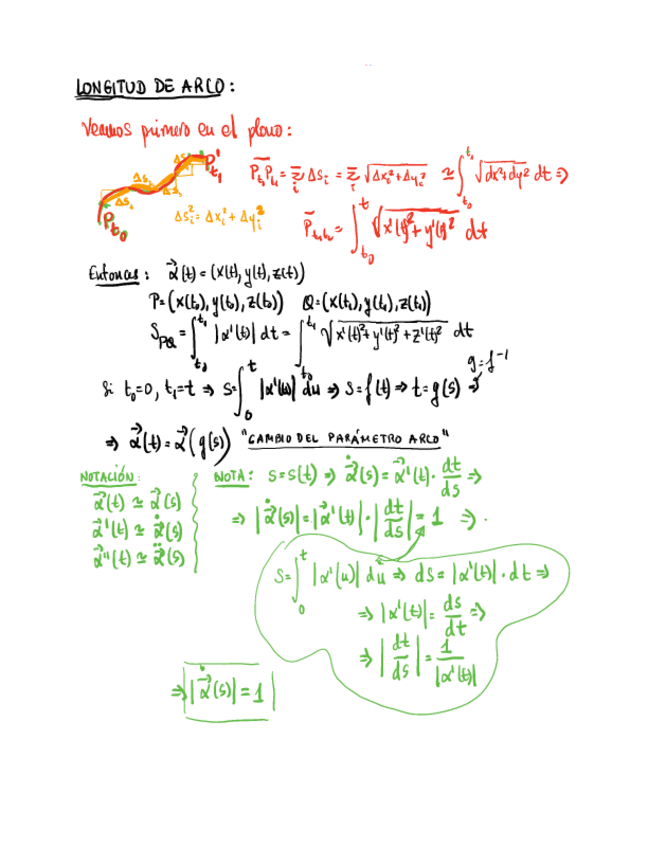 LONGITUD DE ARCO:
Veamos primero en el plano:
P't₁
Δsᵢ
Pt₀
P̃t₀Pt₁ = Σᵢ Δsᵢ = Σᵢ √(Δxᵢ²+Δyᵢ²) ≃ ∫_{t₀}^{t₁} √(dx²+dy²) dt ⇒
Δsᵢ² = Δxᵢ² + Δyᵢ²
P̃t₀t₁ = ∫_{t₀}^{t} √(x'(t)² + y'(t)²) dt
Entonces: α⃗(t) = (x(t), y(t), z(t))
P = (x(t₀), y(t₀), z(t₀)) Q = (x(t₁), y(t₁), z(t₁))
S_PQ = ∫_{t₀}^{t₁} |α'(t)| dt = ∫_{t₀}^{t₁} √(x'(t)² + y'(t)² + z'(t)²) dt
g = f⁻¹
Si t₀=0, t₁=t ⇒ s = ∫₀ᵗ |α'(u)| du ⇒ s = f(t) ⇒ t = g(s) ⇒
⇒ α⃗(t) = α⃗(g(s)) "CAMBIO DEL PARÁMETRO ARCO"
NOTACIÓN:
α⃗(t) ≃ α⃗(s)
α⃗'(t) ≃ α⃗̇(s)
α⃗''(t) ≃ α⃗̈(s)
NOTA: s = s(t) ⇒ α⃗̇(s) = α⃗'(t) · dt/ds ⇒
⇒ |α⃗̇(s)| = |α⃗'(t)| · |dt/ds| = 1 ⇒ .
s = ∫₀ᵗ |α'(u)| du ⇒ ds = |α'(t)| · dt ⇒
⇒ |α'(t)| = ds/dt ⇒
⇒ |dt/ds| = 1/|α'(t)|
⇒ |α⃗̇(s)| = 1